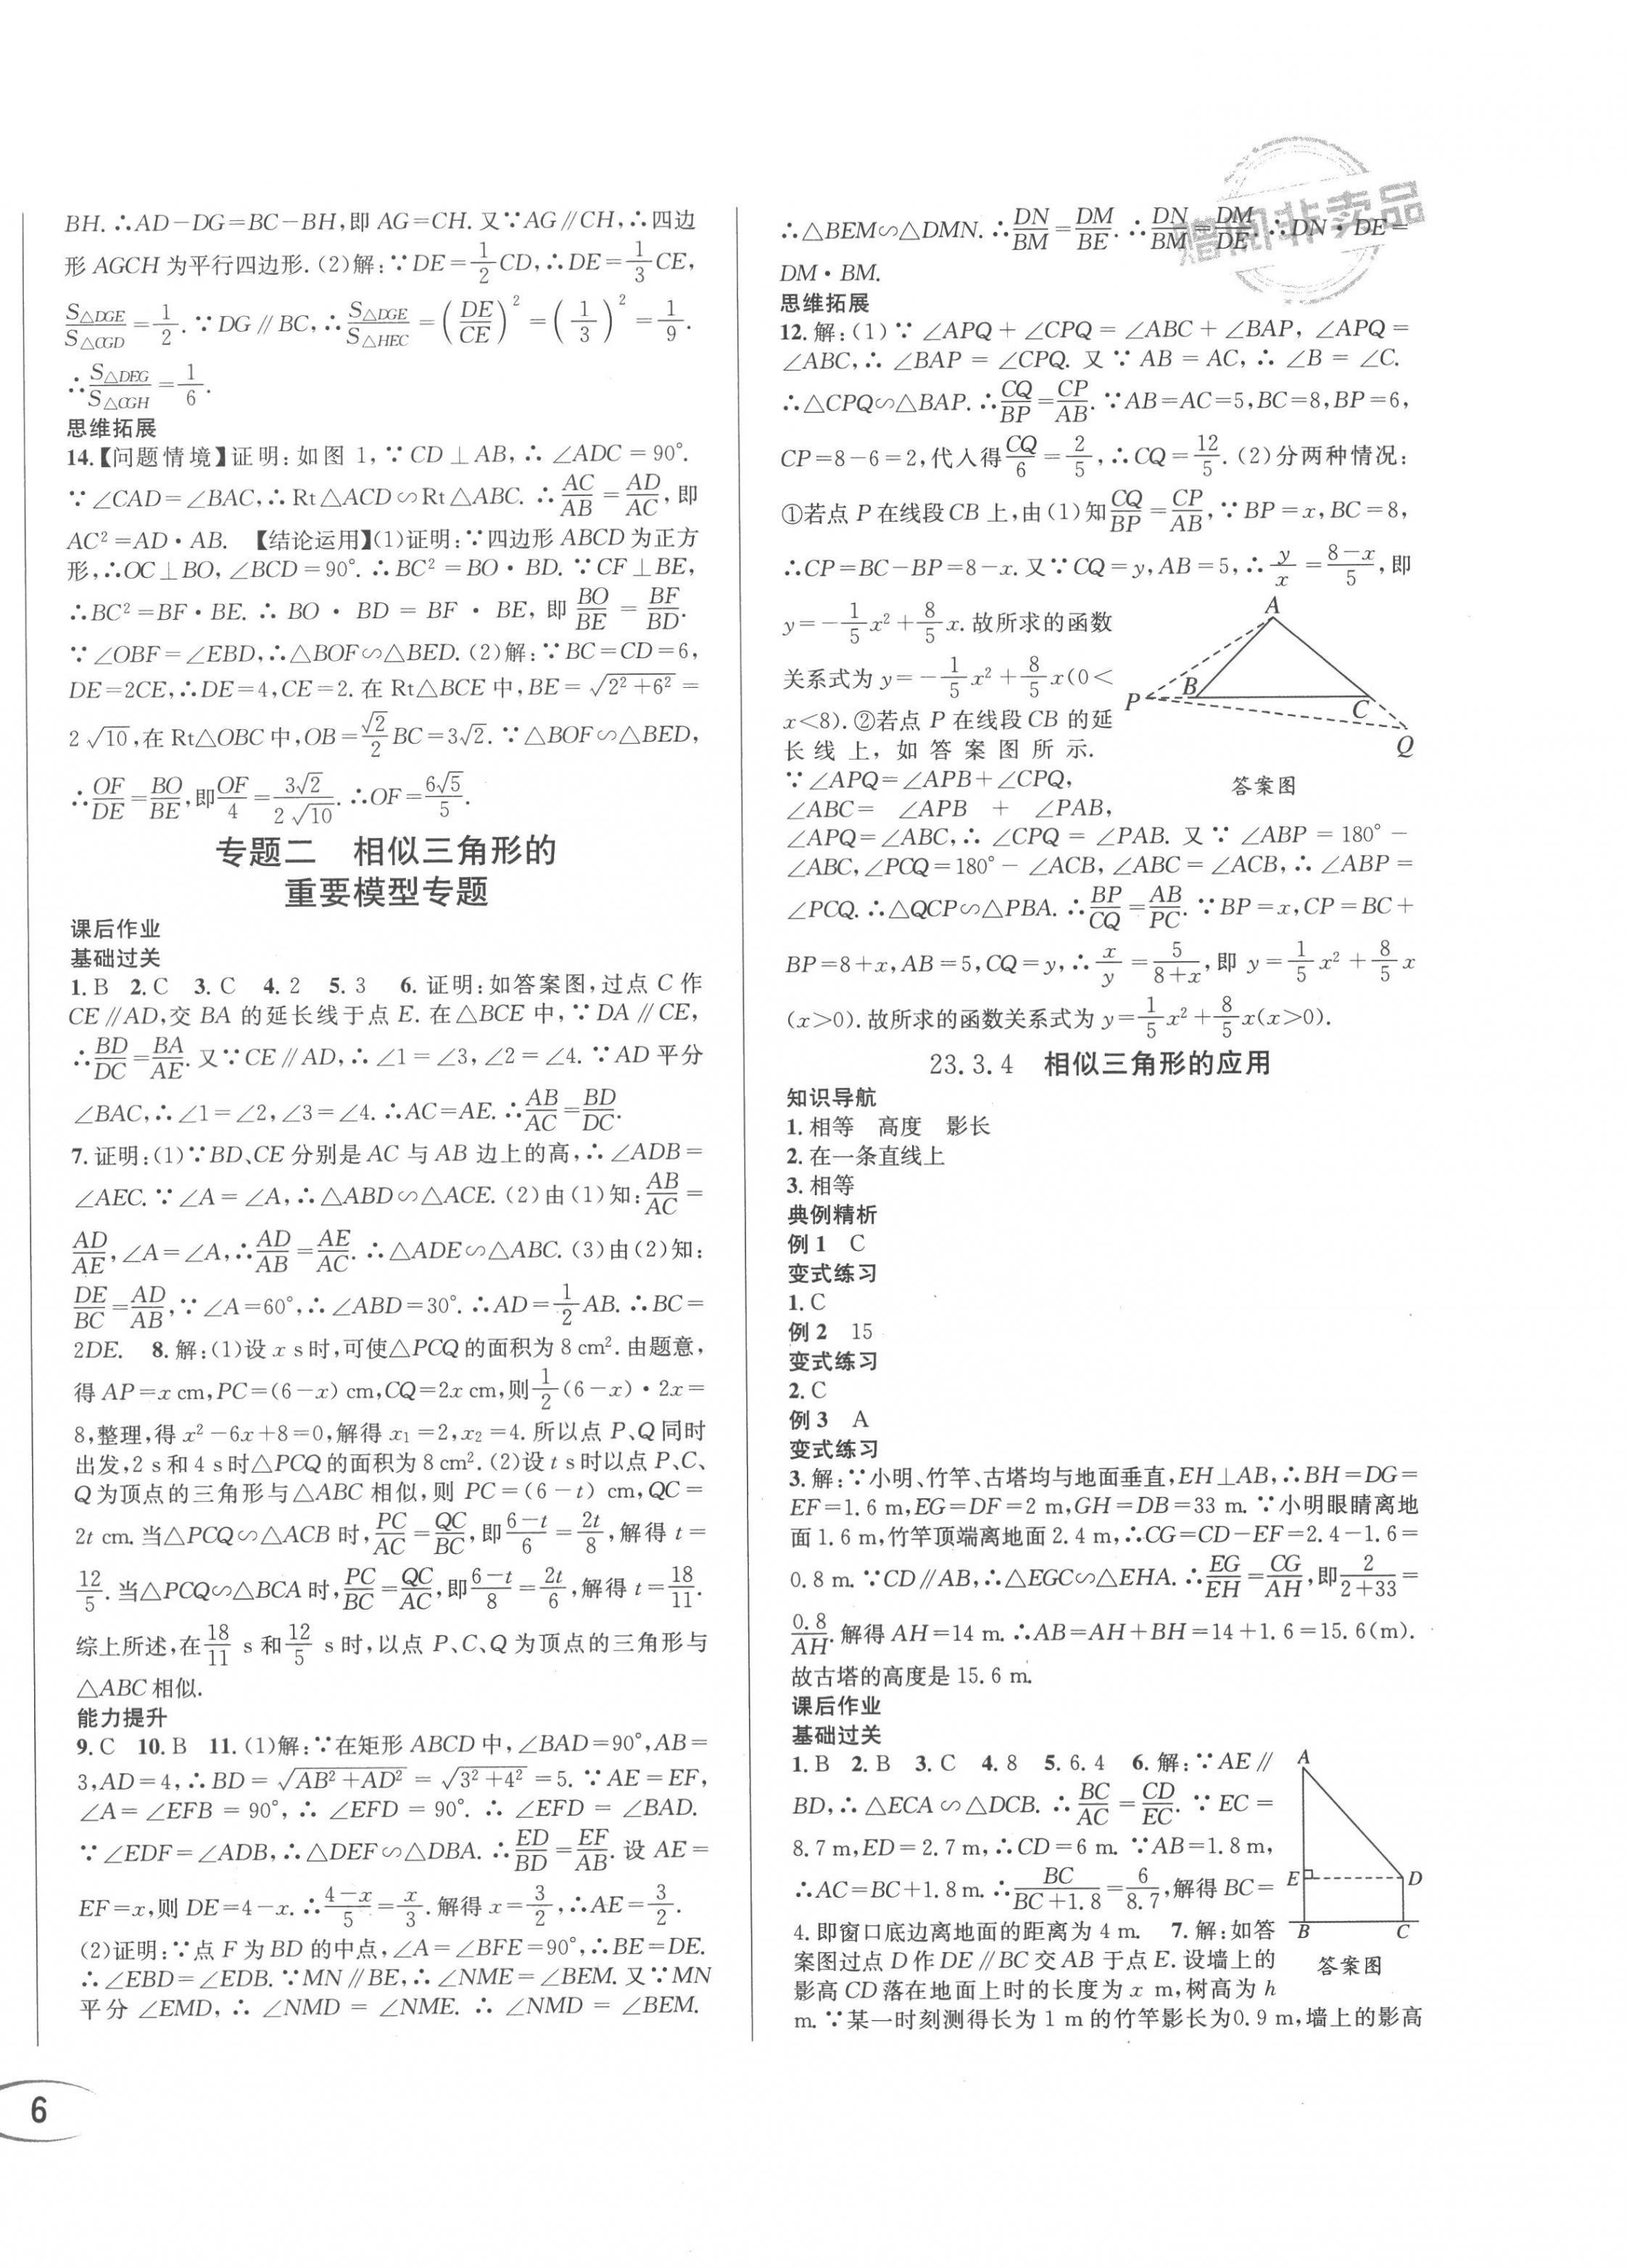 BH. ∴AD－DG＝BC－BH,即 AG＝CH. 又∵AG∥CH,∴四边
形 AGCH 为平行四边形. (2)解:∵DE＝1/2 CD,∴DE＝1/3 CE,
S△DGE/S△CGD＝1/2. ∵DG∥BC,∴S△DGE/S△HEC＝(DE/CE)²＝(1/3)²＝1/9.
∴S△DEG/S△CGH＝1/6.
思维拓展
14.【问题情境】证明:如图 1,∵CD⊥AB,∴∠ADC＝90°.
∵∠CAD＝∠BAC,∴Rt△ACD∽Rt△ABC. ∴AC/AB＝AD/AC,即
AC²＝AD·AB. 【结论运用】(1)证明:∵四边形 ABCD 为正方
形,∴OC⊥BO,∠BCD＝90°. ∴BC²＝BO·BD. ∵CF⊥BE,
∴BC²＝BF·BE. ∴BO·BD＝BF·BE,即 BO/BE＝BF/BD.
∵∠OBF＝∠EBD,∴△BOF∽△BED. (2)解:∵BC＝CD＝6,
DE＝2CE,∴DE＝4,CE＝2. 在 Rt△BCE 中,BE＝√(2²＋6²)＝
2√10,在 Rt△OBC 中,OB＝√2/2 BC＝3√2. ∵△BOF∽△BED,
∴OF/DE＝BO/BE,即OF/4＝3√2/2√10. ∴OF＝6√5/5.
专题二 相似三角形的
重要模型专题
课后作业
基础过关
1. B 2. C 3. C 4. 2 5. 3 6. 证明:如答案图,过点 C 作
CE∥AD,交 BA 的延长线于点 E. 在△BCE 中,∵DA∥CE,
∴BD/DC＝BA/AE. 又∵CE∥AD,∴∠1＝∠3,∠2＝∠4. ∵AD 平分
∠BAC,∴∠1＝∠2,∠3＝∠4. ∴AC＝AE. ∴AB/AC＝BD/DC.
7. 证明:(1)∵BD、CE 分别是 AC 与 AB 边上的高,∴∠ADB＝
∠AEC. ∵∠A＝∠A,∴△ABD∽△ACE. (2)由(1)知:AB/AC＝
AD/AE,∠A＝∠A,∴AD/AB＝AE/AC. ∴△ADE∽△ABC. (3)由(2)知:
DE/BC＝AD/AB,∵∠A＝60°,∴∠ABD＝30°. ∴AD＝1/2 AB. ∴BC＝
2DE. 8. 解:(1)设 x s 时,可使△PCQ 的面积为 8 cm². 由题意,
得 AP＝x cm,PC＝(6－x) cm,CQ＝2x cm,则1/2(6－x)·2x＝
8,整理,得 x²－6x＋8＝0,解得 x₁＝2,x₂＝4. 所以点 P、Q 同时
出发,2 s 和 4 s 时△PCQ 的面积为 8 cm². (2)设 t s 时以点 P、C、
Q 为顶点的三角形与△ABC 相似,则 PC＝(6－t) cm,QC＝
2t cm. 当△PCQ∽△ACB 时,PC/AC＝QC/BC,即6－t/6＝2t/8,解得 t＝
12/5. 当△PCQ∽△BCA 时,PC/BC＝QC/AC,即6－t/8＝2t/6,解得 t＝18/11.
综上所述,在18/11 s 和12/5 s 时,以点 P、C、Q 为顶点的三角形与
△ABC 相似.
能力提升
9. C 10. B 11. (1)解:∵在矩形 ABCD 中,∠BAD＝90°,AB＝
3,AD＝4,∴BD＝√(AB²＋AD²)＝√(3²＋4²)＝5. ∵AE＝EF,
∠A＝∠EFB＝90°,∴∠EFD＝90°. ∴∠EFD＝∠BAD.
∵∠EDF＝∠ADB,∴△DEF∽△DBA. ∴ED/BD＝EF/AB. 设 AE＝
EF＝x,则 DE＝4－x. ∴4－x/5＝x/3. 解得 x＝3/2,∴AE＝3/2.
(2)证明:∵点 F 为 BD 的中点,∠A＝∠BFE＝90°,∴BE＝DE.
∴∠EBD＝∠EDB. ∵MN∥BE,∴∠NME＝∠BEM. 又∵MN
平分∠EMD,∴∠NMD＝∠NME. ∴∠NMD＝∠BEM.
6
赠阅非卖品
∴△BEM∽△DMN. ∴DN/BM＝DM/BE. ∴DN/BM＝DM/DE. ∴DN·DE＝
DM·BM.
思维拓展
12. 解:(1)∵∠APQ＋∠CPQ＝∠ABC＋∠BAP,∠APQ＝
∠ABC,∴∠BAP＝∠CPQ. 又∵AB＝AC,∴∠B＝∠C.
∴△CPQ∽△BAP. ∴CQ/BP＝CP/AB. ∵AB＝AC＝5,BC＝8,BP＝6,
CP＝8－6＝2,代入得CQ/6＝2/5,∴CQ＝12/5. (2)分两种情况:
①若点 P 在线段 CB 上,由(1)知CQ/BP＝CP/AB,∵BP＝x,BC＝8,
∴CP＝BC－BP＝8－x. 又∵CQ＝y,AB＝5,∴y/x＝8－x/5,即
y＝－1/5 x²＋8/5 x. 故所求的函数
关系式为 y＝－1/5 x²＋8/5 x(0＜
x＜8). ②若点 P 在线段 CB 的延
长线上,如答案图所示.
∵∠APQ＝∠APB＋∠CPQ,
∠ABC＝∠APB＋∠PAB,
A
P
B
C
Q
答案图
∠APQ＝∠ABC,∴∠CPQ＝∠PAB. 又∵∠ABP＝180°－
∠ABC,∠PCQ＝180°－∠ACB,∠ABC＝∠ACB,∴∠ABP＝
∠PCQ. ∴△QCP∽△PBA. ∴BP/CQ＝AB/PC. ∵BP＝x,CP＝BC＋
BP＝8＋x,AB＝5,CQ＝y,∴x/y＝5/8＋x,即 y＝1/5 x²＋8/5 x
(x＞0). 故所求的函数关系式为 y＝1/5 x²＋8/5 x(x＞0).
23.3.4 相似三角形的应用
知识导航
1. 相等 高度 影长
2. 在一条直线上
3. 相等
典例精析
例 1 C
变式练习
1. C
例 2 15
变式练习
2. C
例 3 A
变式练习
3. 解:∵小明、竹竿、古塔均与地面垂直,EH⊥AB,∴BH＝DG＝
EF＝1.6 m,EG＝DF＝2 m,GH＝DB＝33 m. ∵小明眼睛离地
面 1.6 m,竹竿顶端离地面 2.4 m,∴CG＝CD－EF＝2.4－1.6＝
0.8 m. ∵CD∥AB,∴△EGC∽△EHA. ∴EG/EH＝CG/AH,即2/2＋33＝
0.8/AH. 解得 AH＝14 m. ∴AB＝AH＋BH＝14＋1.6＝15.6(m).
故古塔的高度是 15.6 m.
课后作业
基础过关
1. B 2. B 3. C 4. 8 5. 6.4 6. 解:∵AE∥
BD,∴△ECA∽△DCB. ∴BC/AC＝CD/EC. ∵EC＝
8.7 m,ED＝2.7 m,∴CD＝6 m. ∵AB＝1.8 m,
∴AC＝BC＋1.8 m. ∴BC/BC＋1.8＝6/8.7,解得 BC＝
4. 即窗口底边离地面的距离为 4 m. 7. 解:如答
案图过点 D 作 DE∥BC 交 AB 于点 E. 设墙上的
影高 CD 落在地面上时的长度为 x m,树高为 h
A
E
D
B
C
答案图
m. ∵某一时刻测得长为 1 m 的竹竿影长为0.9 m,墙上的影高